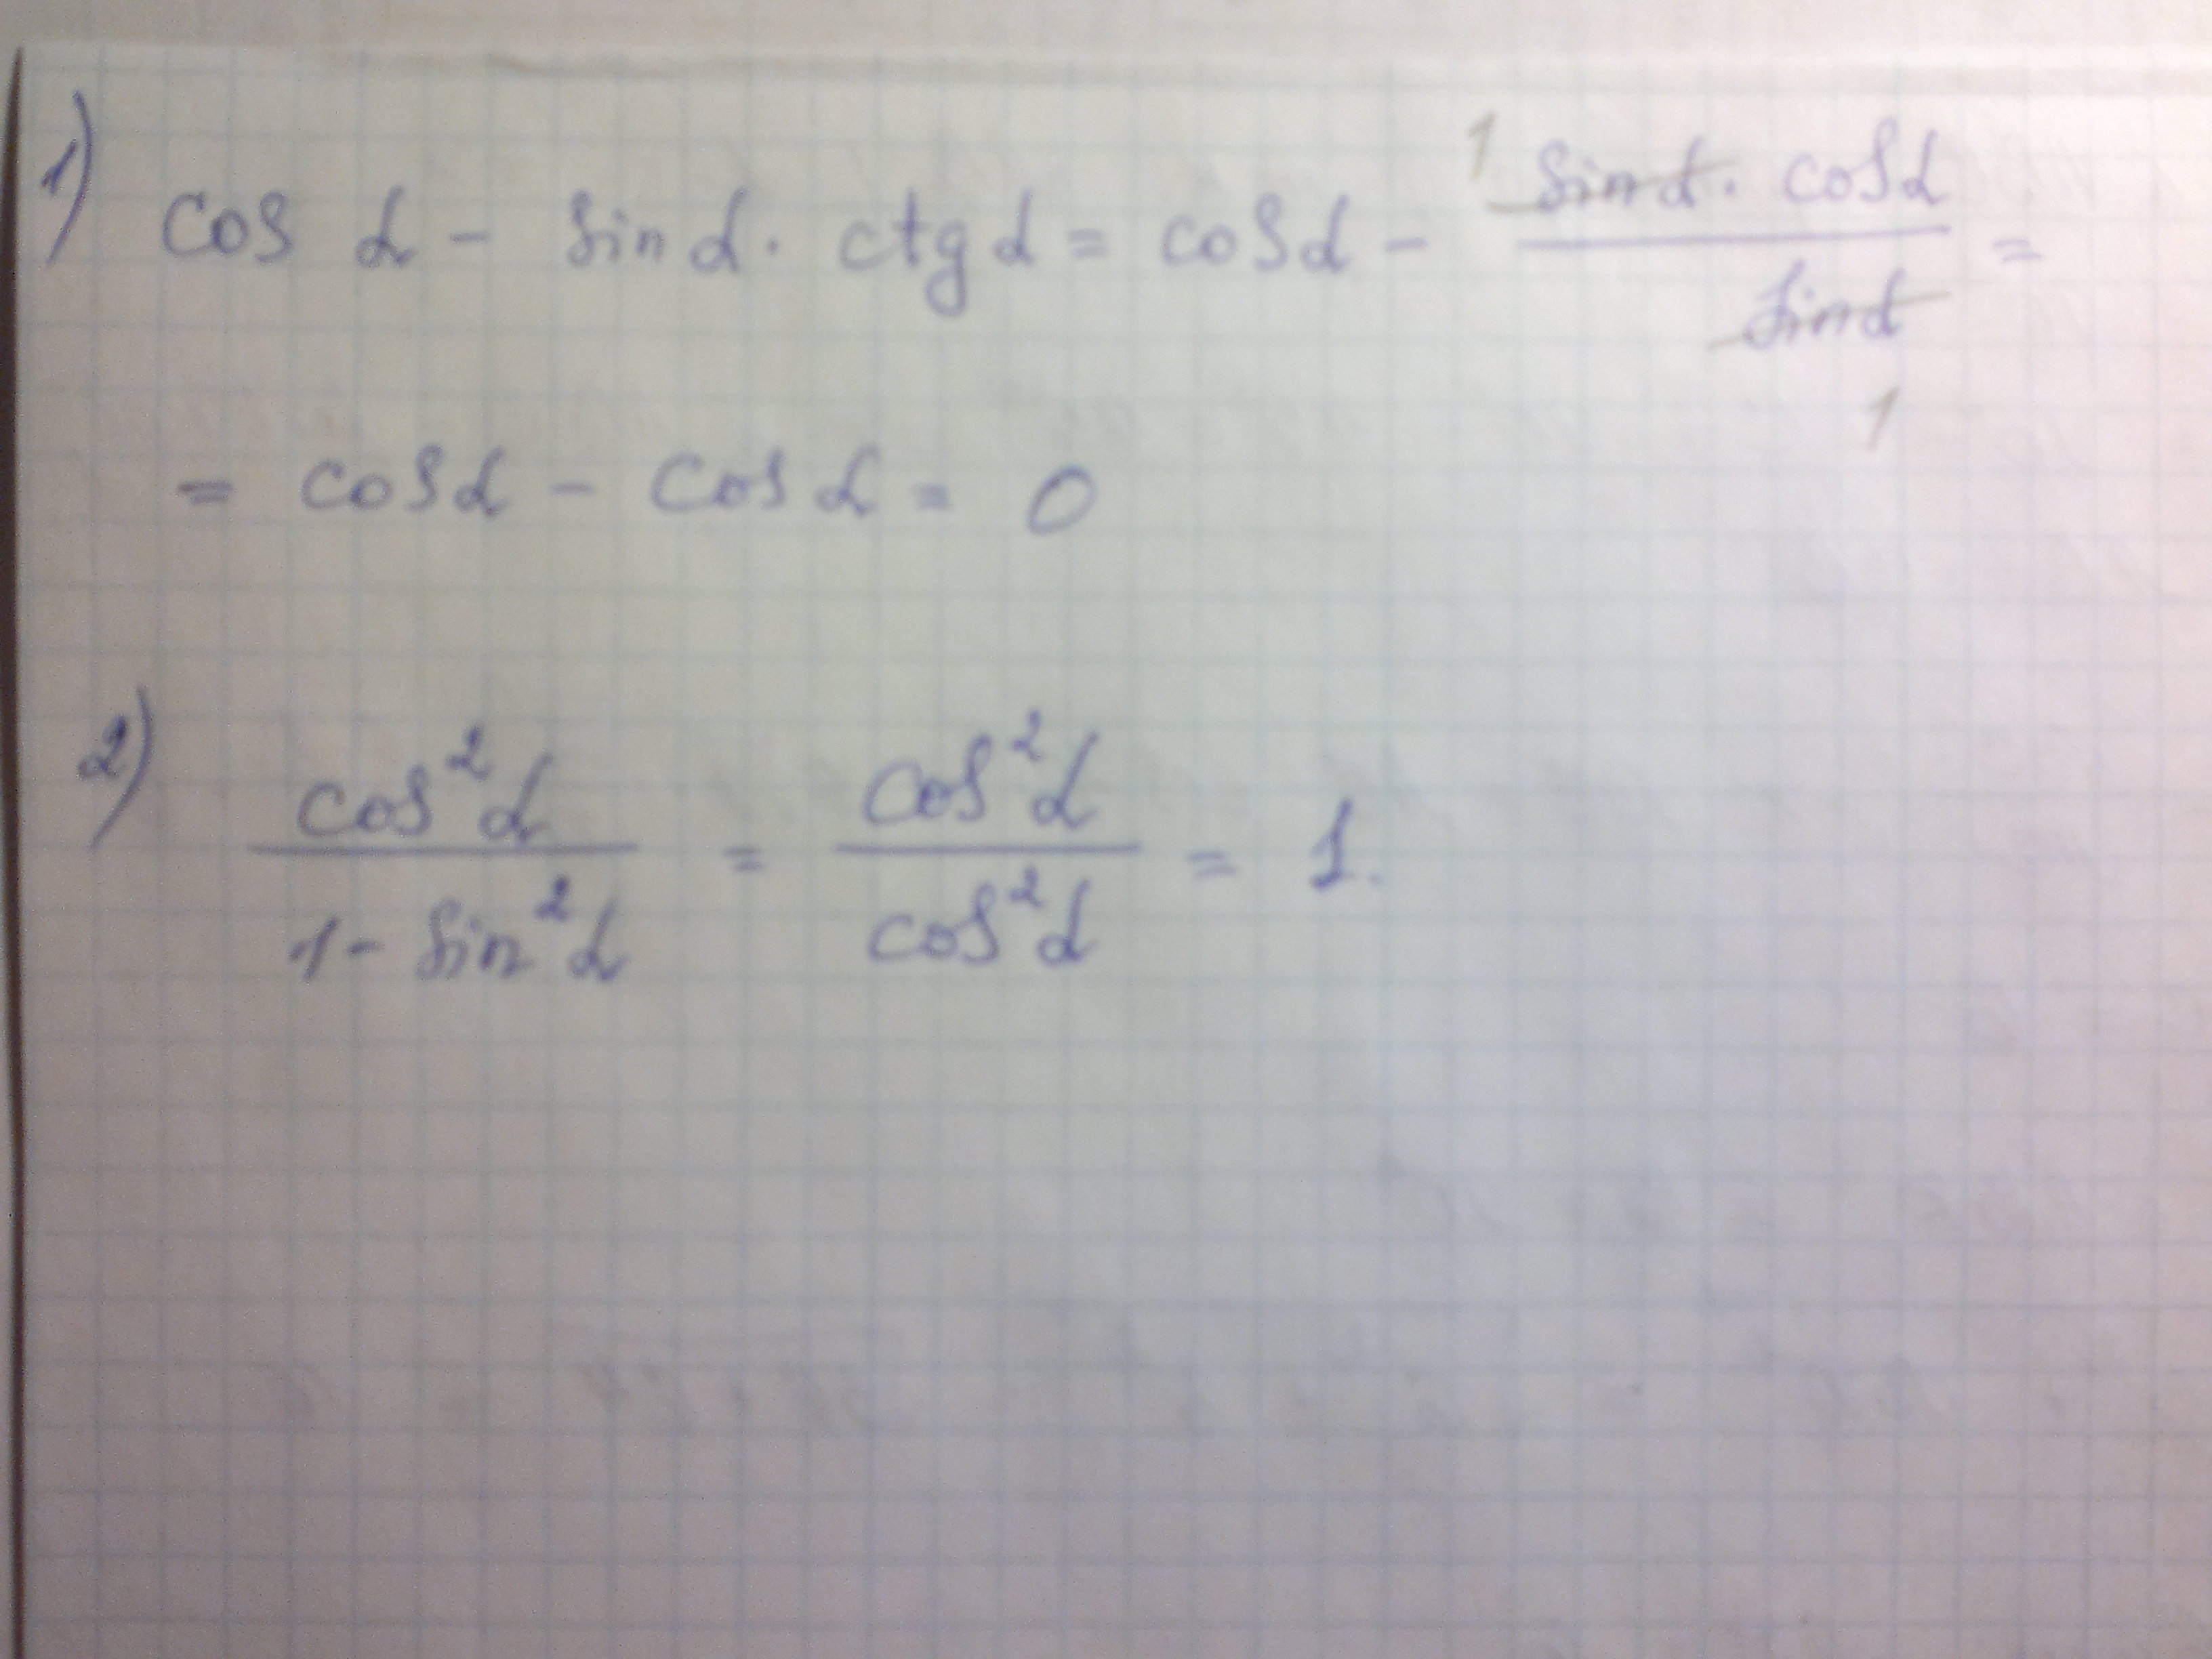 1) cos α - sin α · ctg α = cos α - (sin α · cos α)/(sin α) =
= cos α - cos α = 0
2) (cos²α)/(1 - sin²α) = (cos²α)/(cos²α) = 1.